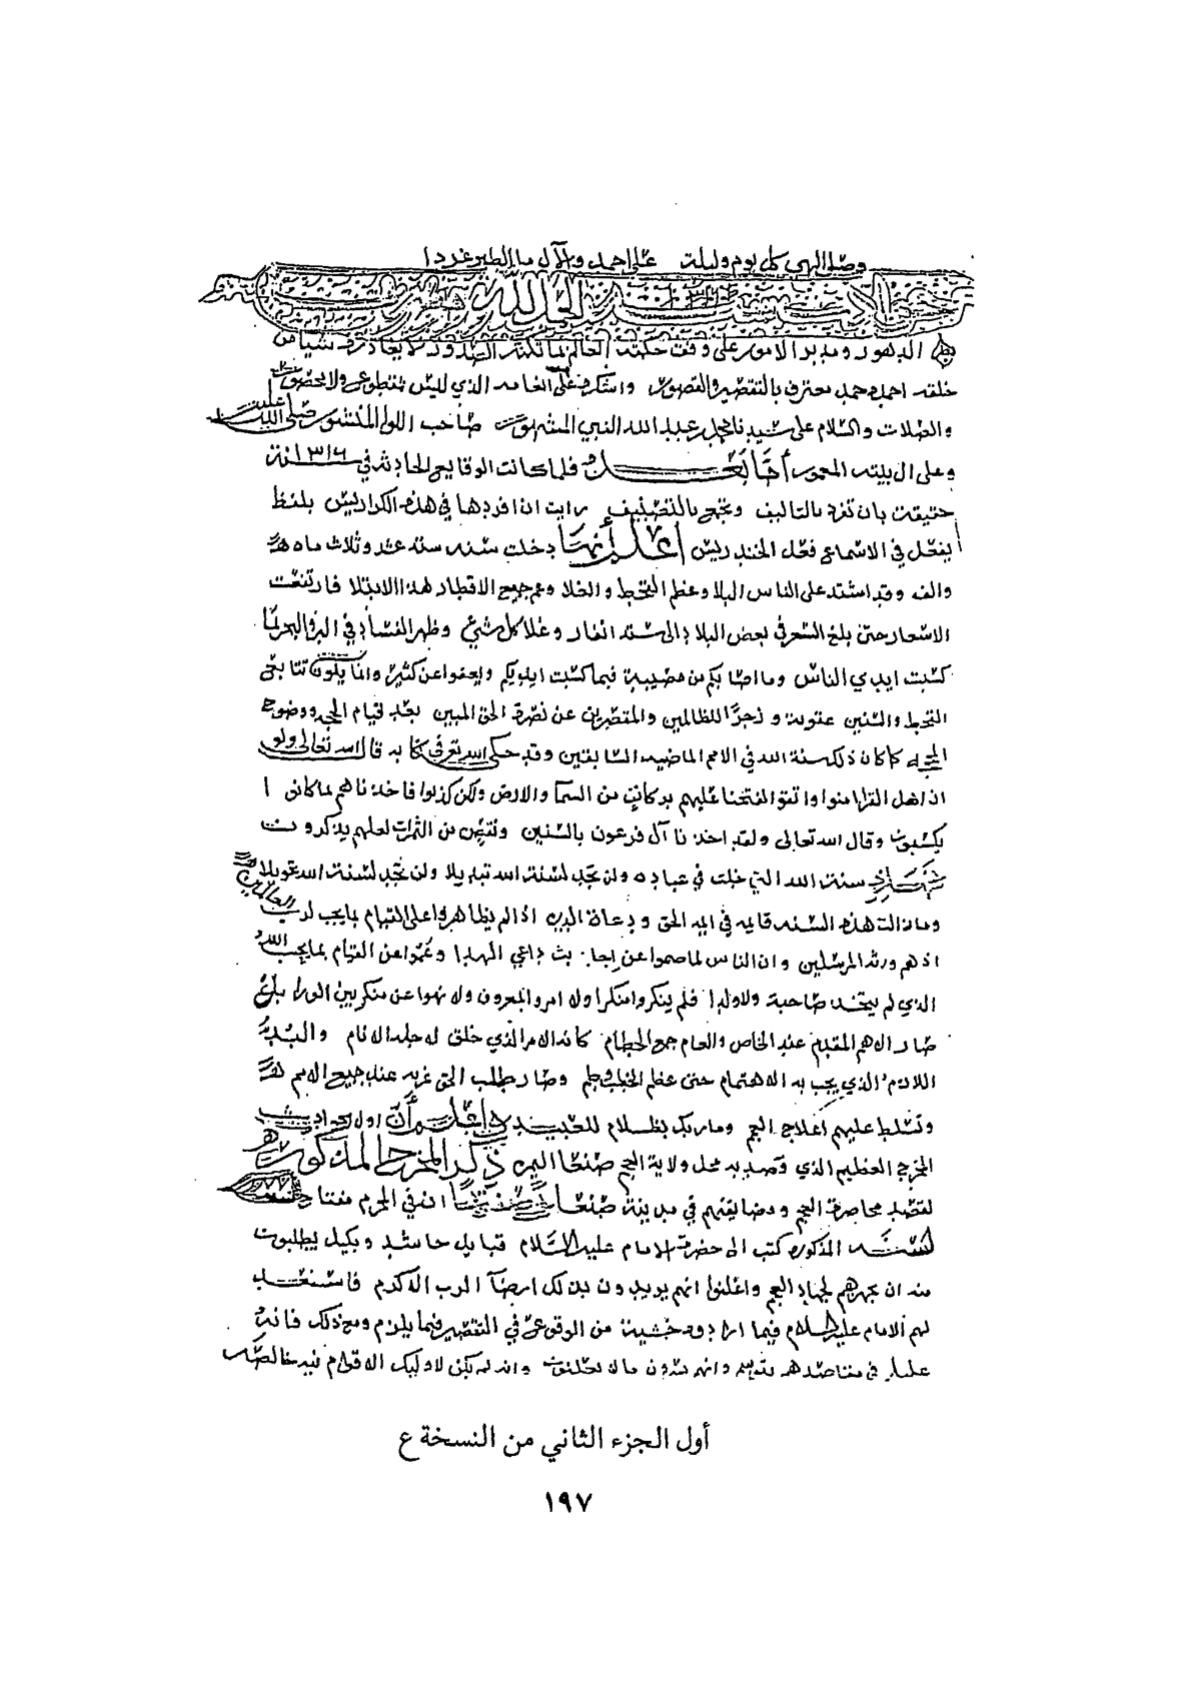 وصلى الهي كل يوم وليلة على احمد والآل ما الطير غردا
حوادث سنة ١٣١٦ الحمد لله
الدهور ومدبر الامور على وفق حكمته العالم بما تكنه الصدور لا يعادره شيا من
خلقه احمده حمد معترف بالتقصير والقصور واشكره على انعامه الذي ليس بمقطوع ولا محصور
والصلات والسلام على سيدنا محمد بن عبد الله النبي المشهور صاحب اللوا المنشور صلى الله عليه
وعلى ال بيته المعمور أما بعد فلما كانت الوقايع الحادثة في سنة ١٣١٦
حقيقة بان تفرد بالتاليف وتجمع بالتصنيف رايت ان افردها في هذه الكراريس بلفظ
يفعل في الاسماع فعل الخندريس اعلم أنها دخلت سنة ستة عشر وثلاث ماه
والف وقد اشتد على الناس البلا وعظم القحط والغلا وعم جميع الاقطار هذا الابتلا فارتفعت
الاسعار حتى بلغ السعر في بعض البلاد الى ستة انفار وغلا كل شيء وظهر الفساد في البر والبحر بما
كسبت ايدي الناس وما اصابكم من مصيبة فبما كسبت ايديكم ويعفوا عن كثير وانما يكون تتابع
القحط والسنين عقوبة وزجرًا للظالمين والمقصرين عن نصرة الحق المبين بعد قيام الحجه ووضوح
المحجه كما كان ذلك سنة الله في الامم الماضيه السابقين وقد حكى الله تع في كتابه قال الله تعالى ولو
ان اهل القرا امنوا واتقوا لفتحنا عليهم بركات من السمآ والارض ولكن كذبوا فاخذناهم بما كانوا
يكسبون وقال الله تعالى ولقد اخذنا آل فرعون بالسنين ونقص من الثمرات لعلهم يذكرون
سنة الله التي خلت في عباده ولن تجد لسنة الله تبديلا ولن تجد لسنة الله تحويلا
وما زالت هذه السنه قايمه في ايمه الحق ودعاة الدين اذا لم يظاهروا على القيام بما يجب لرب العالمين
اذ هم ورثه المرسلين وان الناس لما صموا عن اجابة داعي الهدا وعموا عن القيام بما يجب لله
الذي لم يتخذ صاحبة ولا ولدا فلم ينكروا منكرا ولا امروا بمعروف ولا نهوا عن منكر بين الورا بل
صار الاهم المقدم عند الخاص والعام جمع الحطام كانه الامر الذي خلق له جلد الانام والبد
اللازم الذي يجب به الاهتمام حتى عظم الخطب وطم وصار طلب الحق غريه عند جميع الامم
وتسلط عليهم اعلاج العجم وما ربك بظلام للعبيد واعلم أن اول حوادث
المخرج العظيم الذي قصد به محل ولاية العجم صنعا اليمن ذكر المخرج المذكور
لقصد محاصرة العجم ومضايقتهم في مدينة صنعا انه في المحرم مفتاح
السنة المذكوره كتب الى حضرة الامام عليه السلام قبايل حاشد وبكيل يطلبون
منه ان يجهزهم لجهاد العجم واعلنوا انهم يريدون بذلك ارضآ الرب الاكرم فاسعد
لهم الامام عليه السلام فيما ارادوه خشية من الوقوع في التقصير فيما يلزم ومع ذلك فانه
عليل في مقاصدهم وانه لم يكن لاوليك الاقوام نيه خالصه
أول الجزء الثاني من النسخة ع
١٩٧